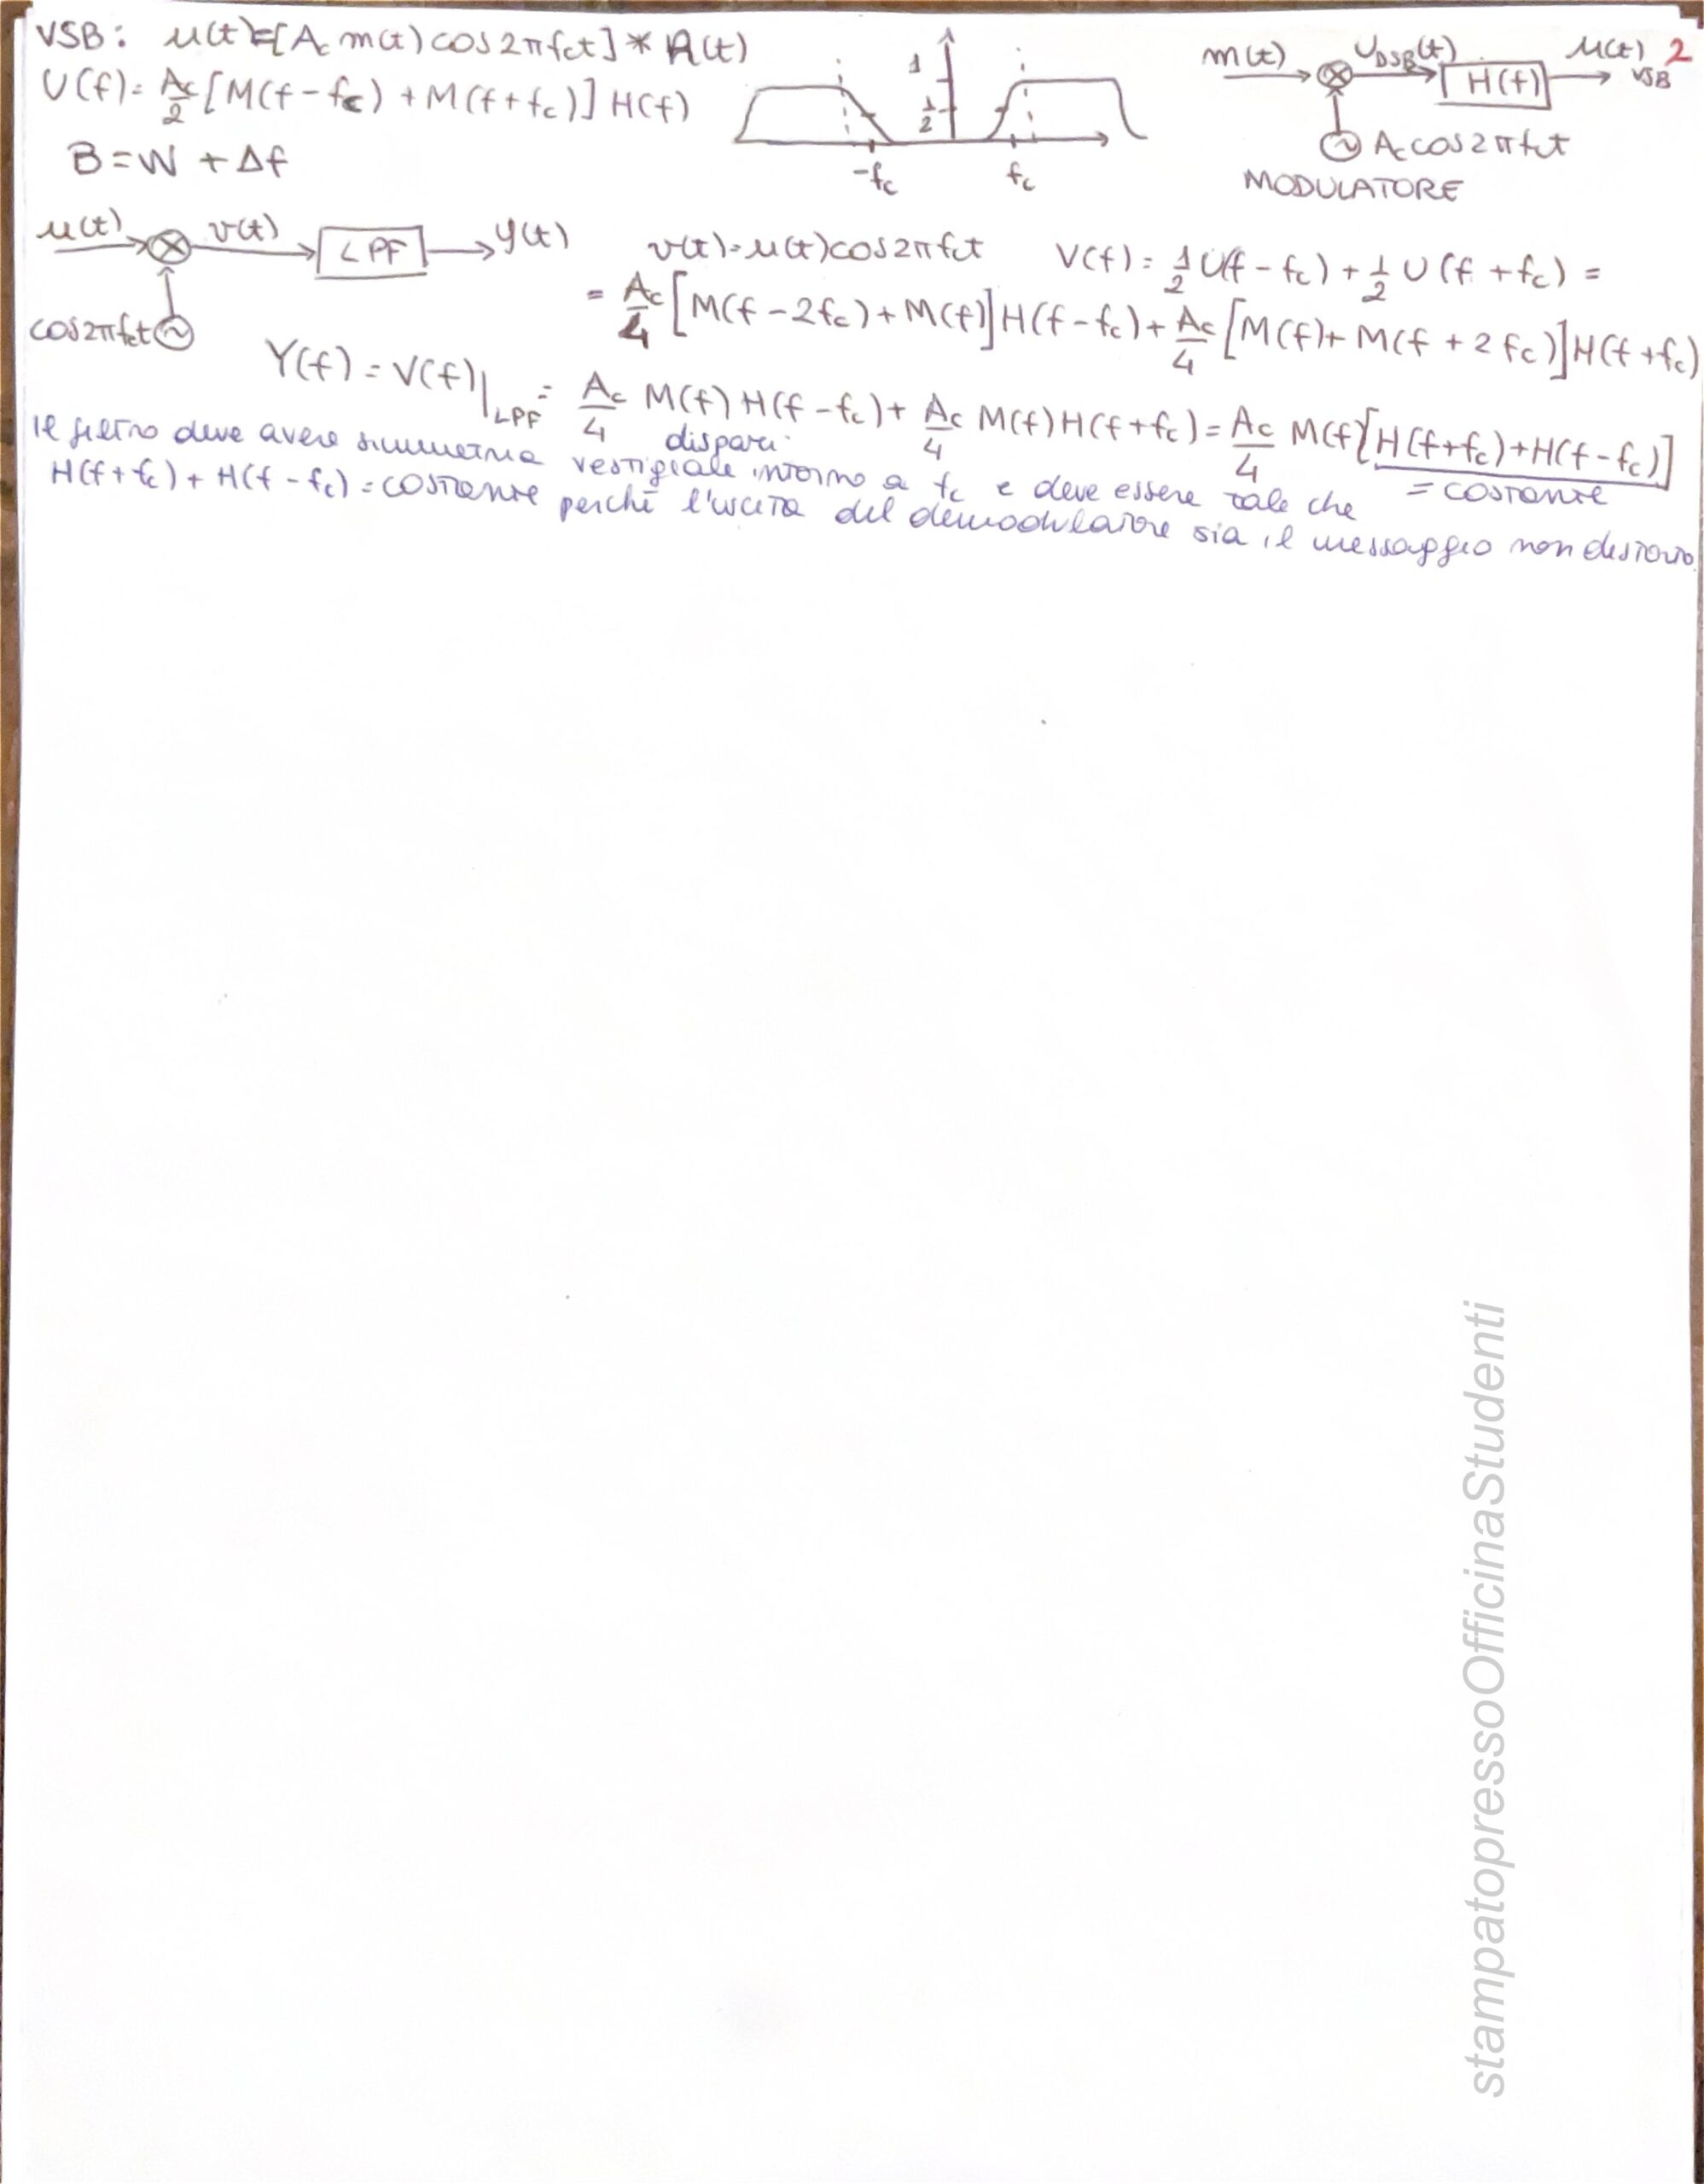 VSB: u(t)=[Ac m(t) cos 2πfct] * h(t)
U(f) = Ac/2 [M(f - fc) + M(f + fc)] H(f)
B = W + Δf
1
1/2
-fc fc
m(t) UDSB(t) H(f) u(t) VSB 2
Ac cos 2πfct
MODULATORE
u(t) v(t) LPF y(t)
cos2πfct
v(t) = u(t) cos 2πfct V(f) = 1/2 U(f - fc) + 1/2 U(f + fc) =
= Ac/4 [M(f - 2fc) + M(f)] H(f - fc) + Ac/4 [M(f) + M(f + 2fc)] H(f + fc)
Y(f) = V(f)|LPF = Ac/4 M(f) H(f - fc) + Ac/4 M(f) H(f + fc) = Ac/4 M(f) [H(f + fc) + H(f - fc)]
= costante
dispari
Il filtro deve avere simmetria vestigiale intorno a fc e deve essere tale che
H(f + fc) + H(f - fc) = costante perché l'uscita del demodulatore sia il messaggio non distorto
stampatopressoOfficinaStudenti